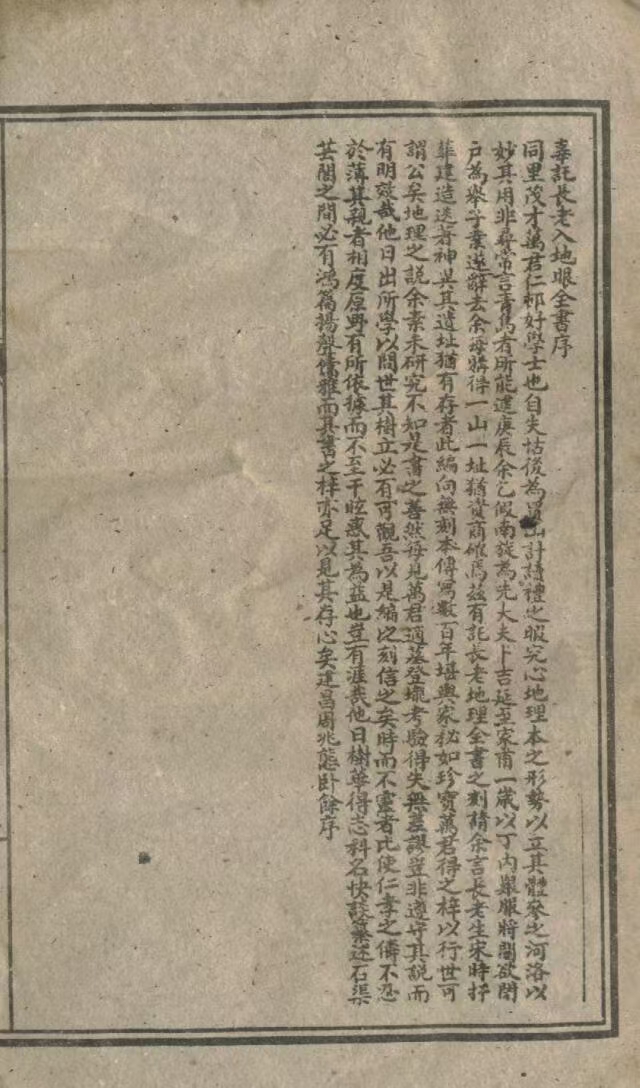 辜託長老入地眼全書序
同里茂才萬君仁邨好學士也自失怙後為買山計讀禮之暇究心地理本之形勢以立其體參之河洛以
妙其用非尋常言青烏者所能逮庚辰余乞假南旋為先大夫卜吉延至家甫一歲以丁內艱服將闋欲閉
戶為舉子業遂辭去余每購得一山一址猶資商確焉茲有託長老地理全書之刻請余言長老生宋時扦
葬建造迭著神異其遺址猶有存者此編向無刻本傳寫數百年堪輿家秘如珍寶萬君得之梓以行世可
謂公矣地理之說余素未研究不知是書之善然每見萬君適墓登壠考驗得失無差謬豈非遵守其說而
有明效哉他日出所學以問世其樹立必有可觀吾以是編之刻信之矣時而不靈者比使仁孝之儔不忍
於薄其親者相度原野有所依據而不至于眩惑其為益也豈有涯哉他日樹華得志科名快談纂述石渠
芸閣之間必有鴻篇揚聲儒雅而其書之梓亦足以見其存心矣建昌周兆熊臥餘序